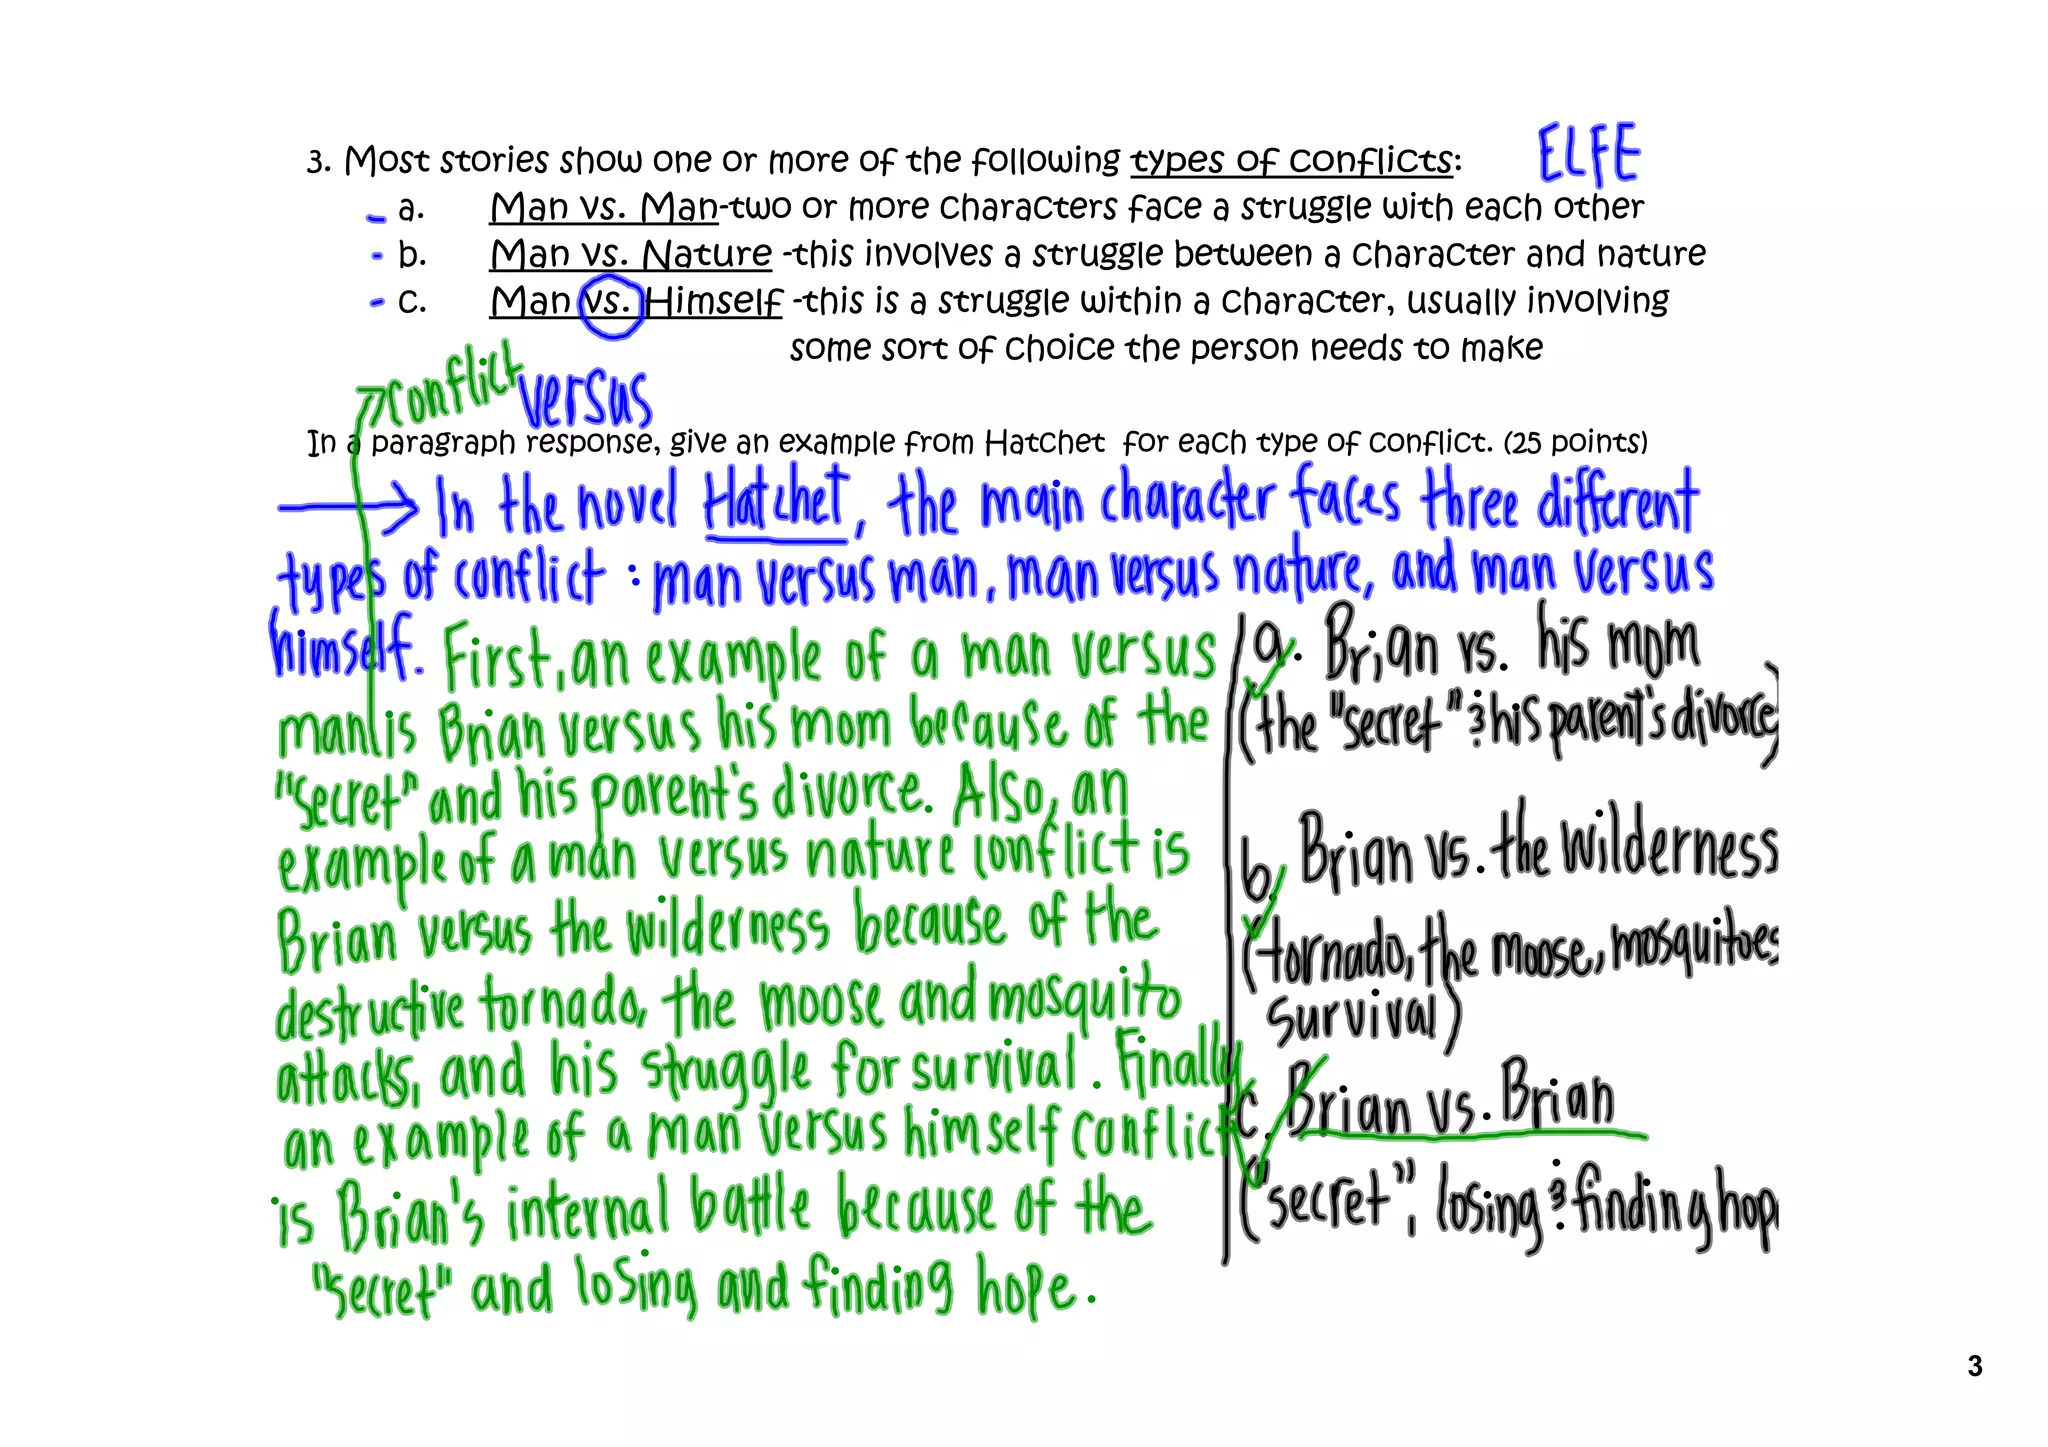 3. Most stories show one or more of the following types of conflicts:
ELFE
a. Man vs. Man-two or more characters face a struggle with each other
b. Man vs. Nature -this involves a struggle between a character and nature
c. Man vs. Himself -this is a struggle within a character, usually involving
some sort of choice the person needs to make
conflict
versus
In a paragraph response, give an example from Hatchet for each type of conflict. (25 points)
In the novel Hatchet, the main character faces three different
types of conflict : man versus man, man versus nature, and man versus
himself. First, an example of a man versus
man is Brian versus his mom because of the
"secret" and his parent's divorce. Also, an
example of a man versus nature conflict is
Brian versus the wilderness because of the
destructive tornado, the moose and mosquito
attacks, and his struggle for survival. Finally,
an example of a man versus himself conflict
is Brian's internal battle because of the
"secret" and losing and finding hope.
a. Brian vs. his mom
(the "secret" & his parent's divorce)
b. Brian vs. the wilderness
(tornado, the moose, mosquitoes
survival)
c. Brian vs. Brian
("secret", losing & finding hop
3